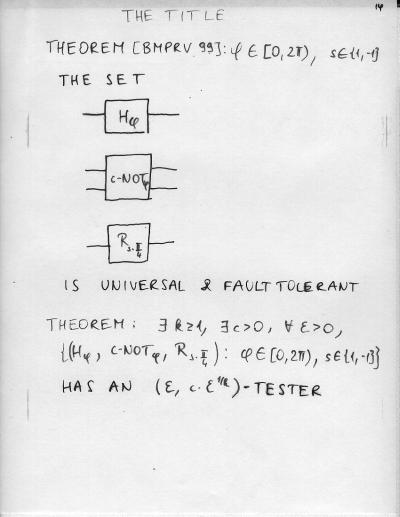 14
THE TITLE
THEOREM [BMPRV 99]: φ ∈ [0, 2π), s∈{1, -1}
THE SET
Hφ
c-NOTφ
R s·π/4
IS UNIVERSAL & FAULT TOLERANT
THEOREM: ∃ k≥1, ∃ c>0, ∀ ε>0,
{(Hφ, c-NOTφ, R s·π/4): φ∈[0, 2π), s∈{1, -1}}
HAS AN (ε, c·ε^1/k)-TESTER